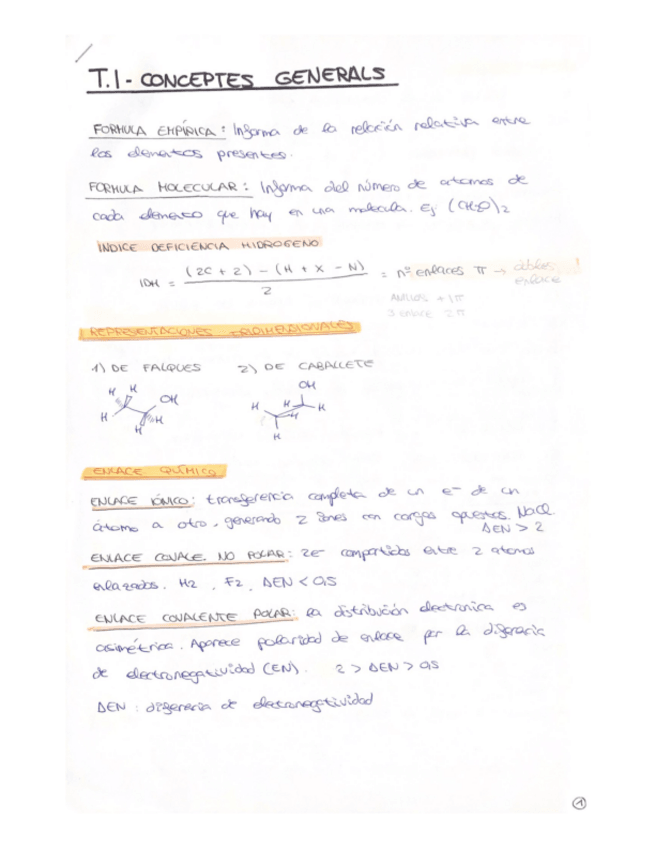 T.1 - CONCEPTES GENERALS
FORMULA EMPÍRICA: Informa de la relación relativa entre
los elementos presentes.
FORMULA MOLECULAR: Informa del número de atomos de
cada elemento que hay en una molecula. Ej (CH2O)2
INDICE DEFICIENCIA HIDROGENO
IDH = (2C + 2) - (H + X - N) / 2 = nº enlaces π → dobles
enlace
ANILLOS + 1π
3 enlace 2π
REPRESENTACIONES TRIDIMENSIONALES
1) DE FALQUES 2) DE CABALLETE
H H OH H H H
OH H H H H H
ENLACE QUÍMICO
ENLACE IÓNICO: transferencia completa de un e- de un
átomo a otro, generando 2 iones con cargas opuestas. NaCl.
ΔEN > 2
ENLACE COVALE. NO POLAR: 2e- compartidos entre 2 atomos
enlazados. H2, F2, ΔEN < 0,5
ENLACE COVALENTE POLAR: la distribución electronica es
asimétrica. Aparece polaridad de enlace por la diferencia
de electronegatividad (EN). 2 > ΔEN > 0,5
ΔEN: diferencia de electronegatividad
1